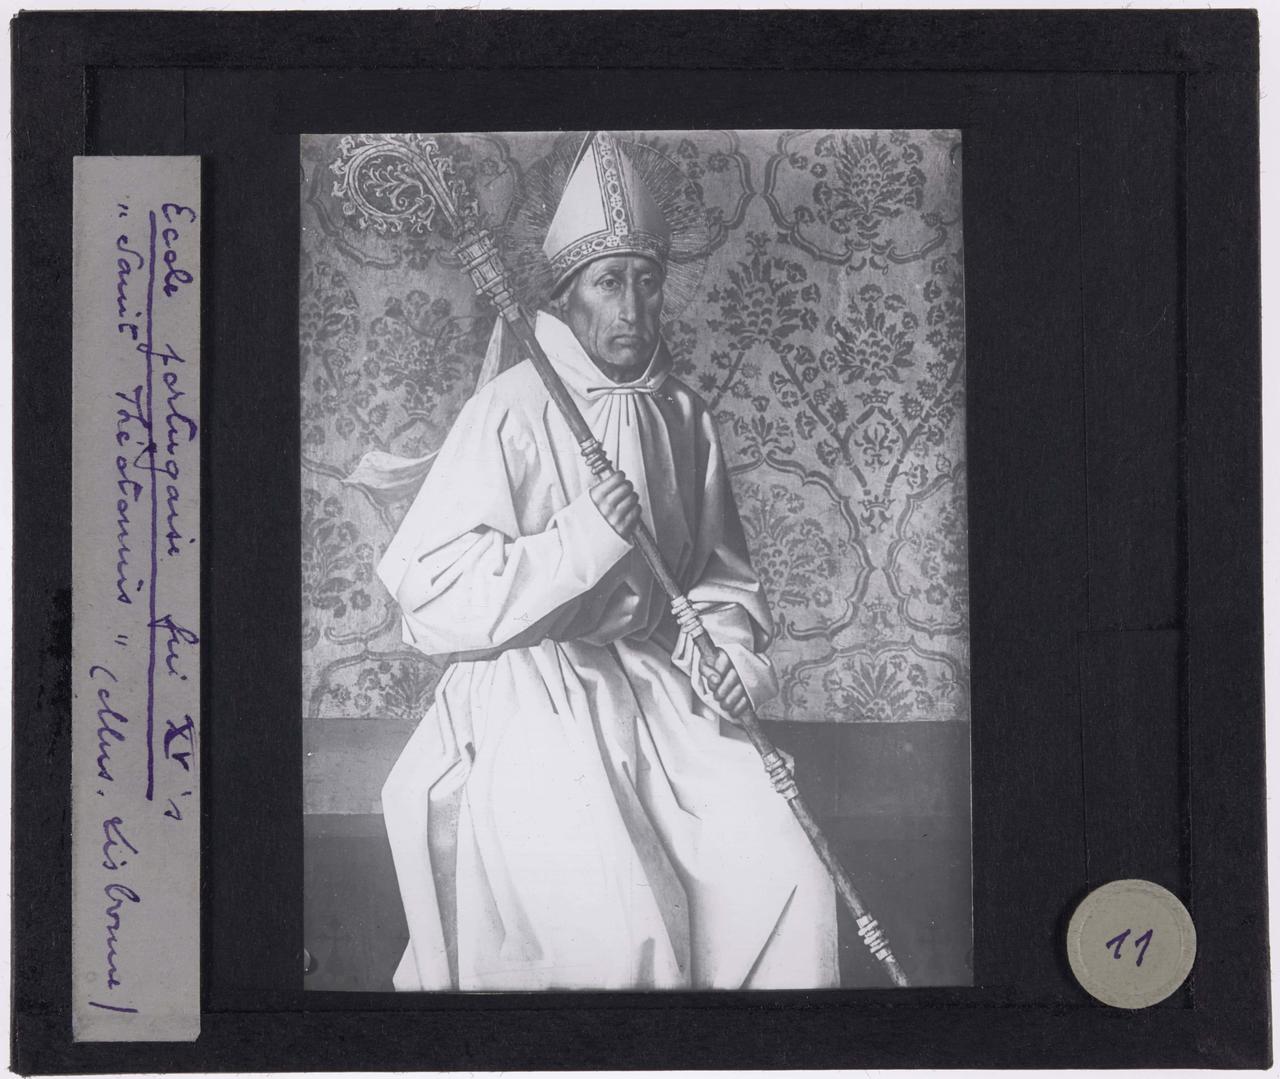 Ecole portugaise fin XV's
"Saint Théotonius" (Mus. Lisbonne)
11